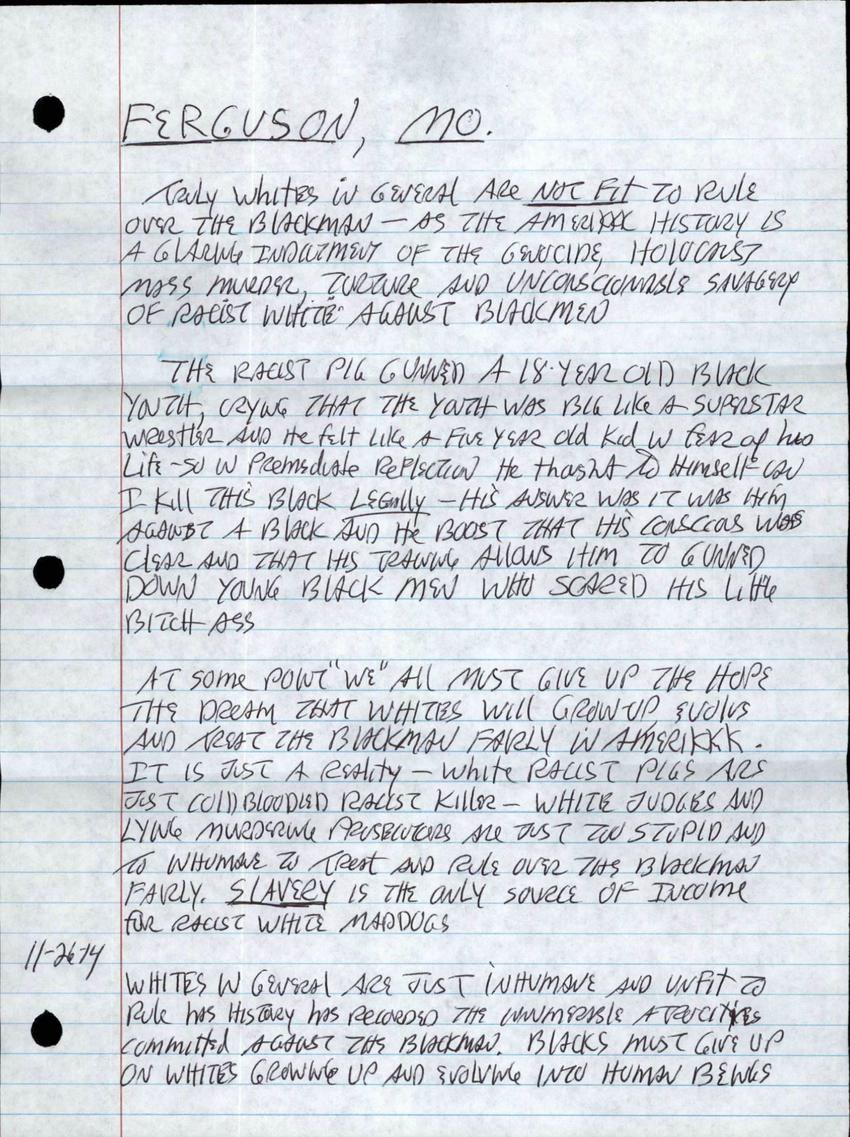 FERGUSON, MO.
Truly WHITES in GENERAL ARE NOT FIT TO RULE
OVER THE BLACKMAN — AS THE AMERIKKK HISTORY IS
A GLARING INDICTMENT OF THE GENOCIDE, HOLOCAUST
MASS MURDER, TORTURE AND UNCONSCIONABLE SAVAGERY
OF RACIST WHITE AGAINST BLACKMEN
THE RACIST PIG GUNNED A 18-YEAR OLD BLACK
YOUTH, CRYING THAT THE YOUTH WAS BIG LIKE A SUPERSTAR
WRESTLER AND HE FELT LIKE A FIVE YEAR old Kid IN fear of his
Life - SO IN PREMEDIATE REFLECTION He thought TO Himself can
I Kill THIS BLACK LEGALLY — HIS ANSWER WAS IT WAS Him
AGAINST A BLACK AND HE BOOST THAT HIS CONSCIOUS WAS
CLEAR AND THAT HIS TRAINING ALLOWS HIM TO GUNNED
DOWN YOUNG BLACK MEN WHO SCARED HIS Little
BITCH ASS
AT some POINT "WE" All MUST GIVE UP THE HOPE
THE DREAM THAT WHITES WILL GROW UP EVOLVE
AND TREAT THE BLACKMAN FAIRLY IN AMERIKKK.
IT IS JUST A REALITY — White RACIST PIGS ARE
JUST COLD BLOODLED RACIST KILLER — WHITE JUDGES AND
LYING MURDERING PROSECUTORS ARE JUST TOO STUPID AND
TO INHUMANE TO TREAT AND RULE OVER THE BLACKMAN
FAIRLY. SLAVERY IS THE ONLY SOURCE OF INCOME
for RACIST WHITE MADDOGS
11-26-14
WHITES IN GENERAL ARE JUST INHUMANE AND UNFIT TO
Rule has HISTORY has RECORDED THE INNUMERABLE ATROCITIES
committed AGAINST THE BLACKMAN. BLACKS MUST GIVE UP
ON WHITES GROWING UP AND EVOLVING INTO HUMAN BEINGS